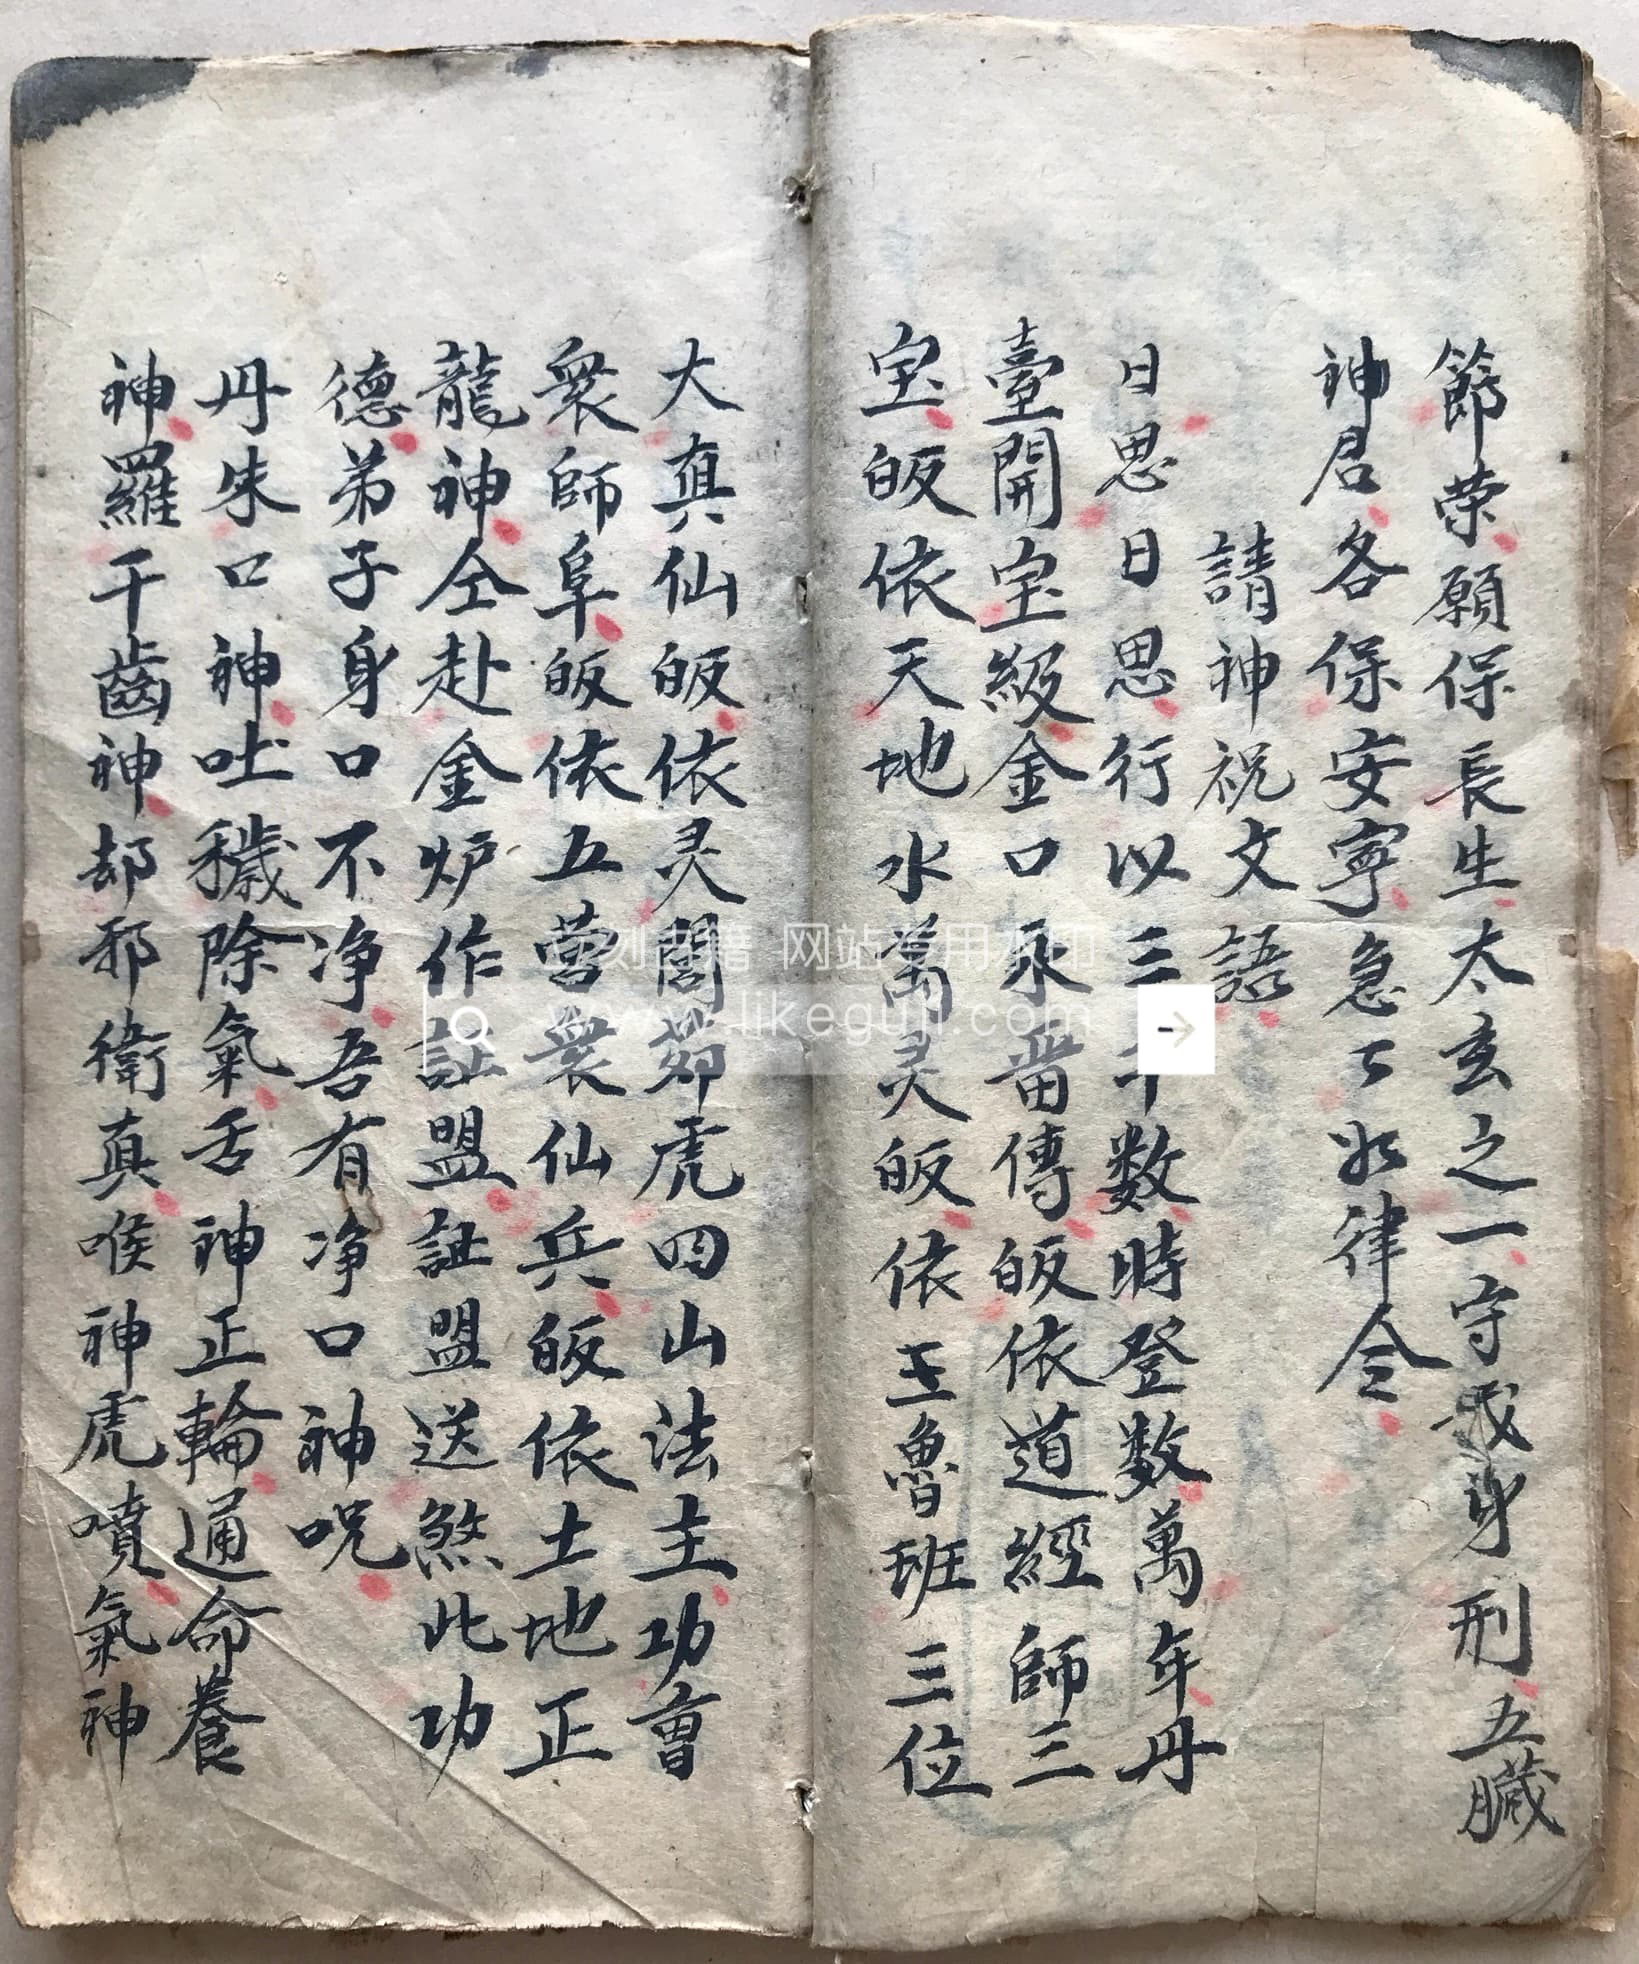 節荣願保長生太玄之一守我身刑五臟
神君各保安寧急了如律令
請神祝文語
日思日思行以三千数時登数萬年丹
臺開宝級金口永畨傳皈依道經師三
宝皈依天地水萬灵皈依王魯班三位
大真仙皈依灵閭茆虎四山法主功曹
衆師阜皈依五营衆仙兵皈依土地正
龍神仝赴金炉作証盟証盟送煞此功
德弟子身口不净吾有净口神呪
丹朱口神吐穢除氣舌神正輪通命養
神羅千齒神却邪衛真喉神虎噴氣神
立刻古籍 网站专用水印
www.likeguji.com